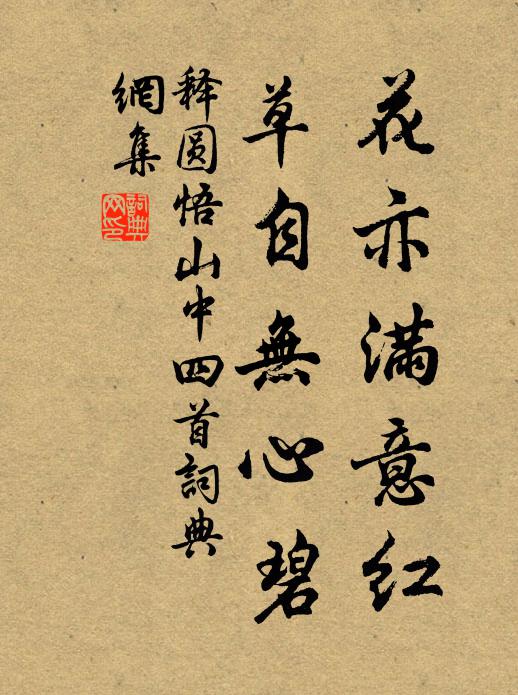 花亦满意红
草自無心碧
释圆悟山中四首詞典
網集
詞典
网印